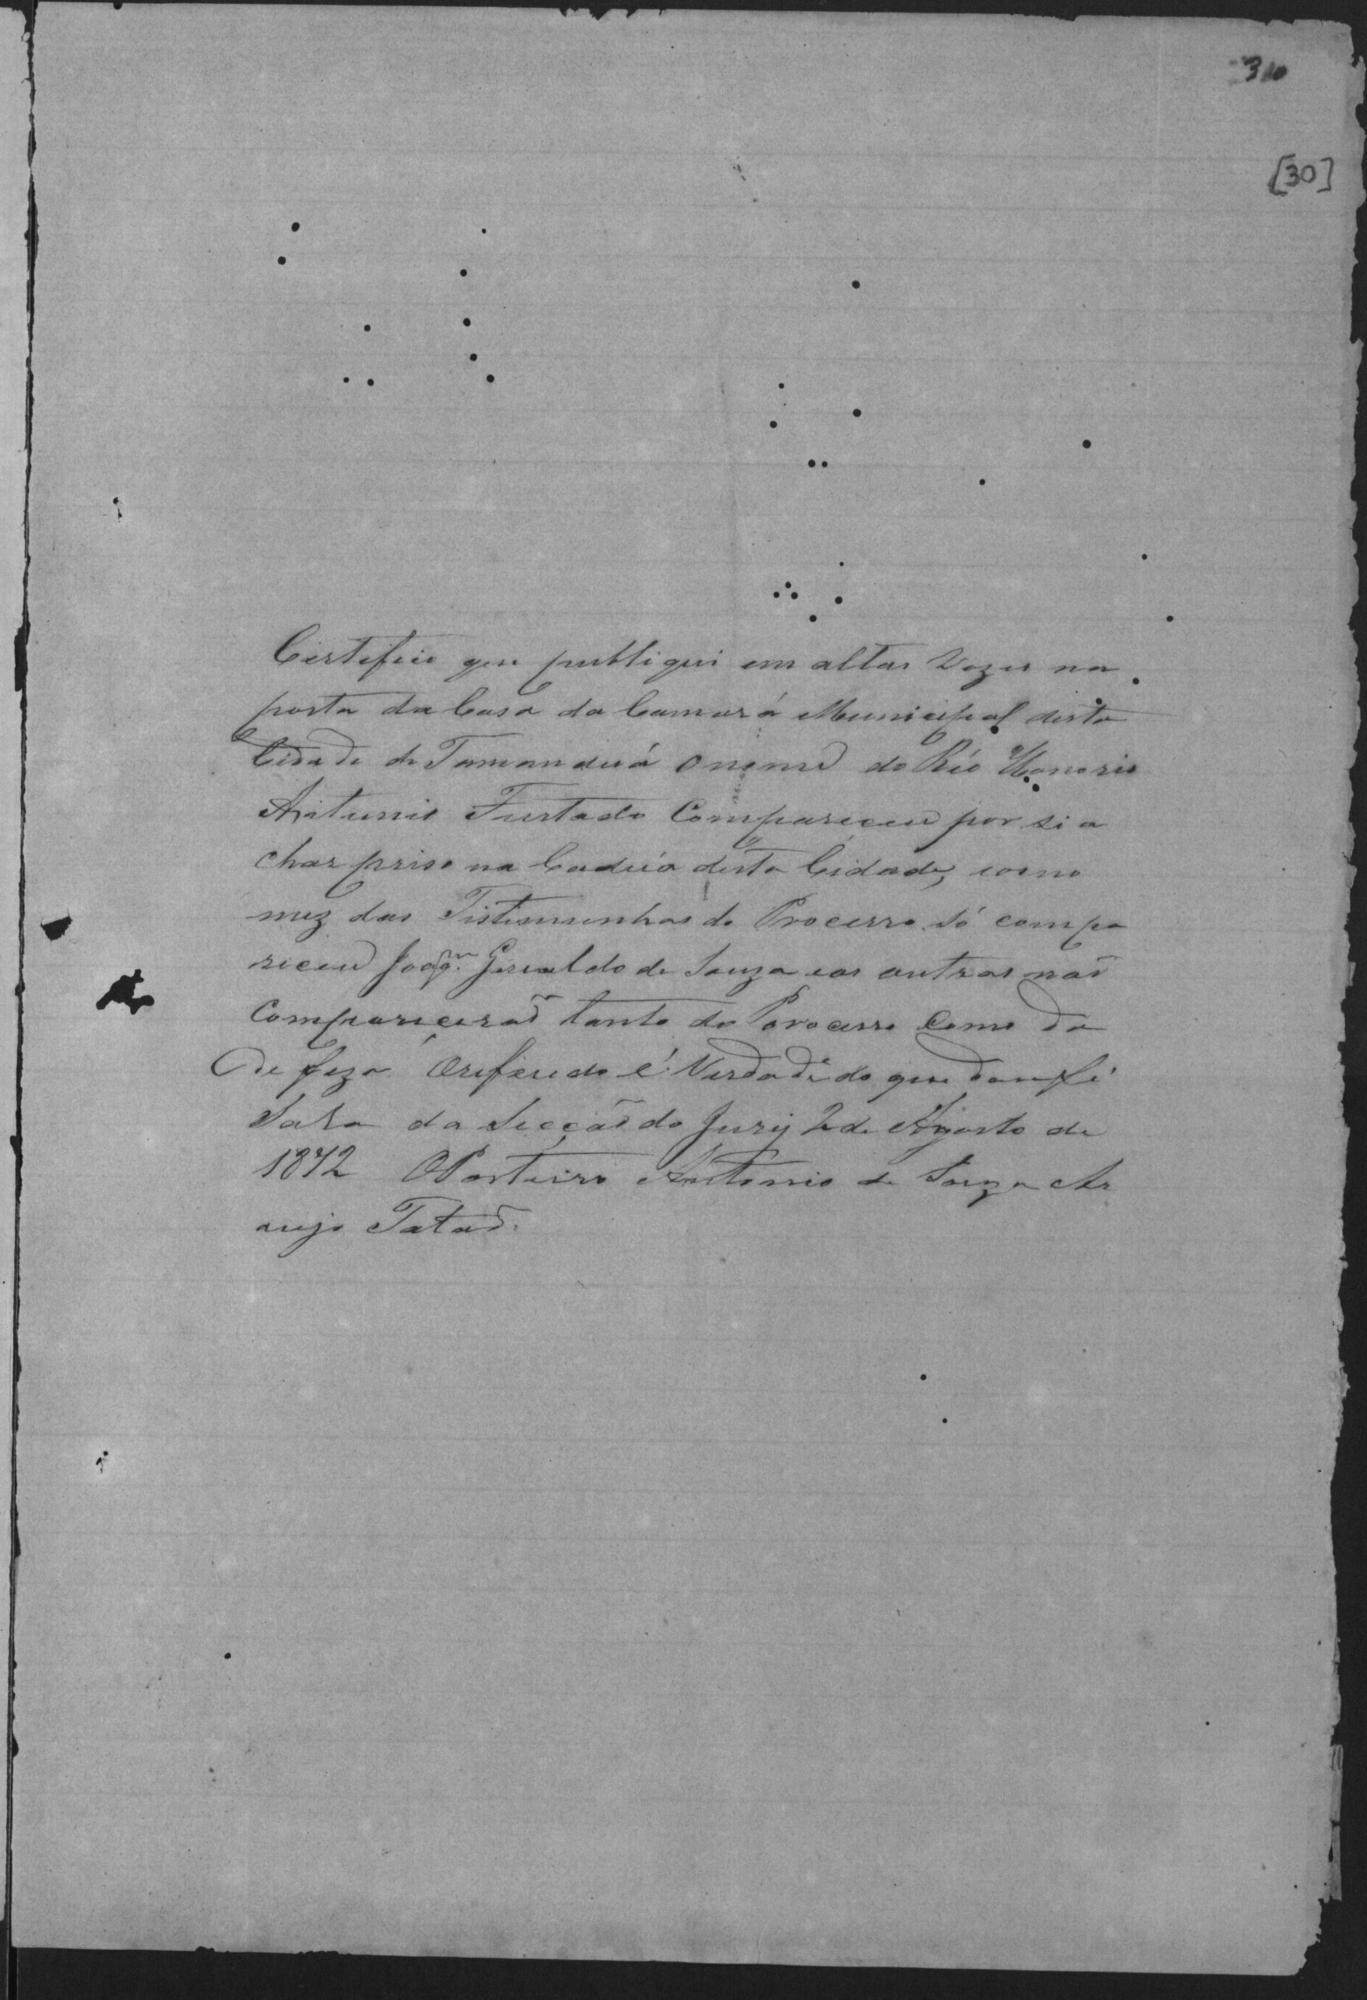 30
[30]
Certifico que publiquei em altas Vozes na
porta da Casa da Camara Municipal desta
Cidade de Tamanduá o nome do Réo Honorio
Antunis Furtado Compareceu por si a
char prêso na Cadeia desta Cidade, como
mez das Tistimunhas do Processo só compa
receu Joaqm. Geraldo de Souza eas outras não
Comparicerão tanto do Processo Como da
Defeza. Oreferido é Verdade do que dou fé
Sala da Secção do Jury 2 de Agosto de
1872 O Porteiro Antonio de Souza Ar
aujo Tatão.